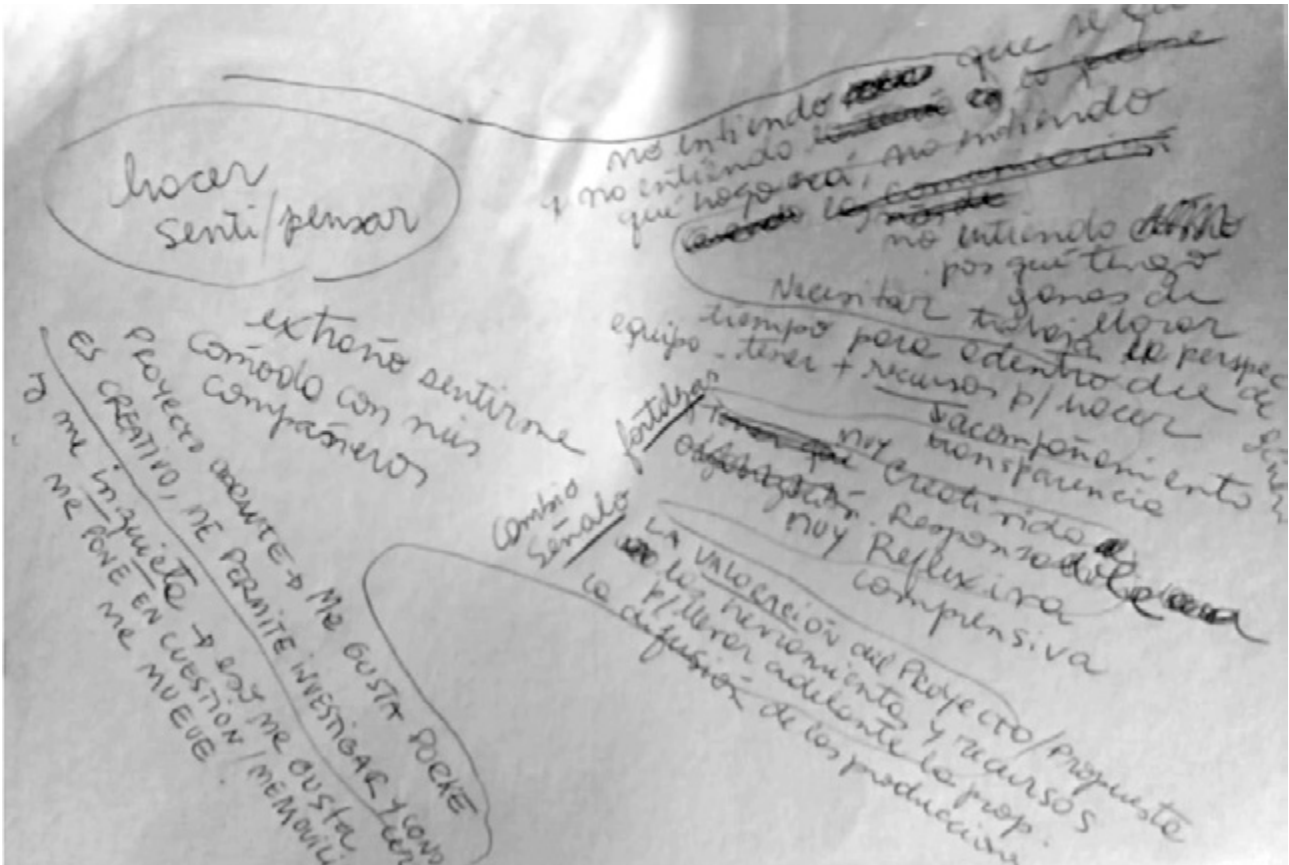 hacer
senti/pensar
no entiendo que se
y no entiendo lo que
qué hago acá, no entiendo
no entiendo
por qué tengo
ganas de
llorar
Necesitar trabajar la perspec
tiempo para adentro del de
equipo - tener + recursos p/ hacer
acompañamiento
transparencia
extraño sentirme
comoda con mis
compañeros
fortalezas
muy creativida
Responsable
muy Reflexiva
comprensiva
cambio
señalo
LA VALORACIÓN del PROYECTO/propuesta
las herramientas y recursos
p/llevar adelante la prop.
la difusión de las produccion
PROYECTO DOCENTE → Me GUSTA PORKE
ES CREATIVO, ME PERMITE INVESTIGAR Y CONO
y me inquieta → eso me GUSTA
me PONE EN CUESTIÓN / MEMOVILI
me MUEVE.